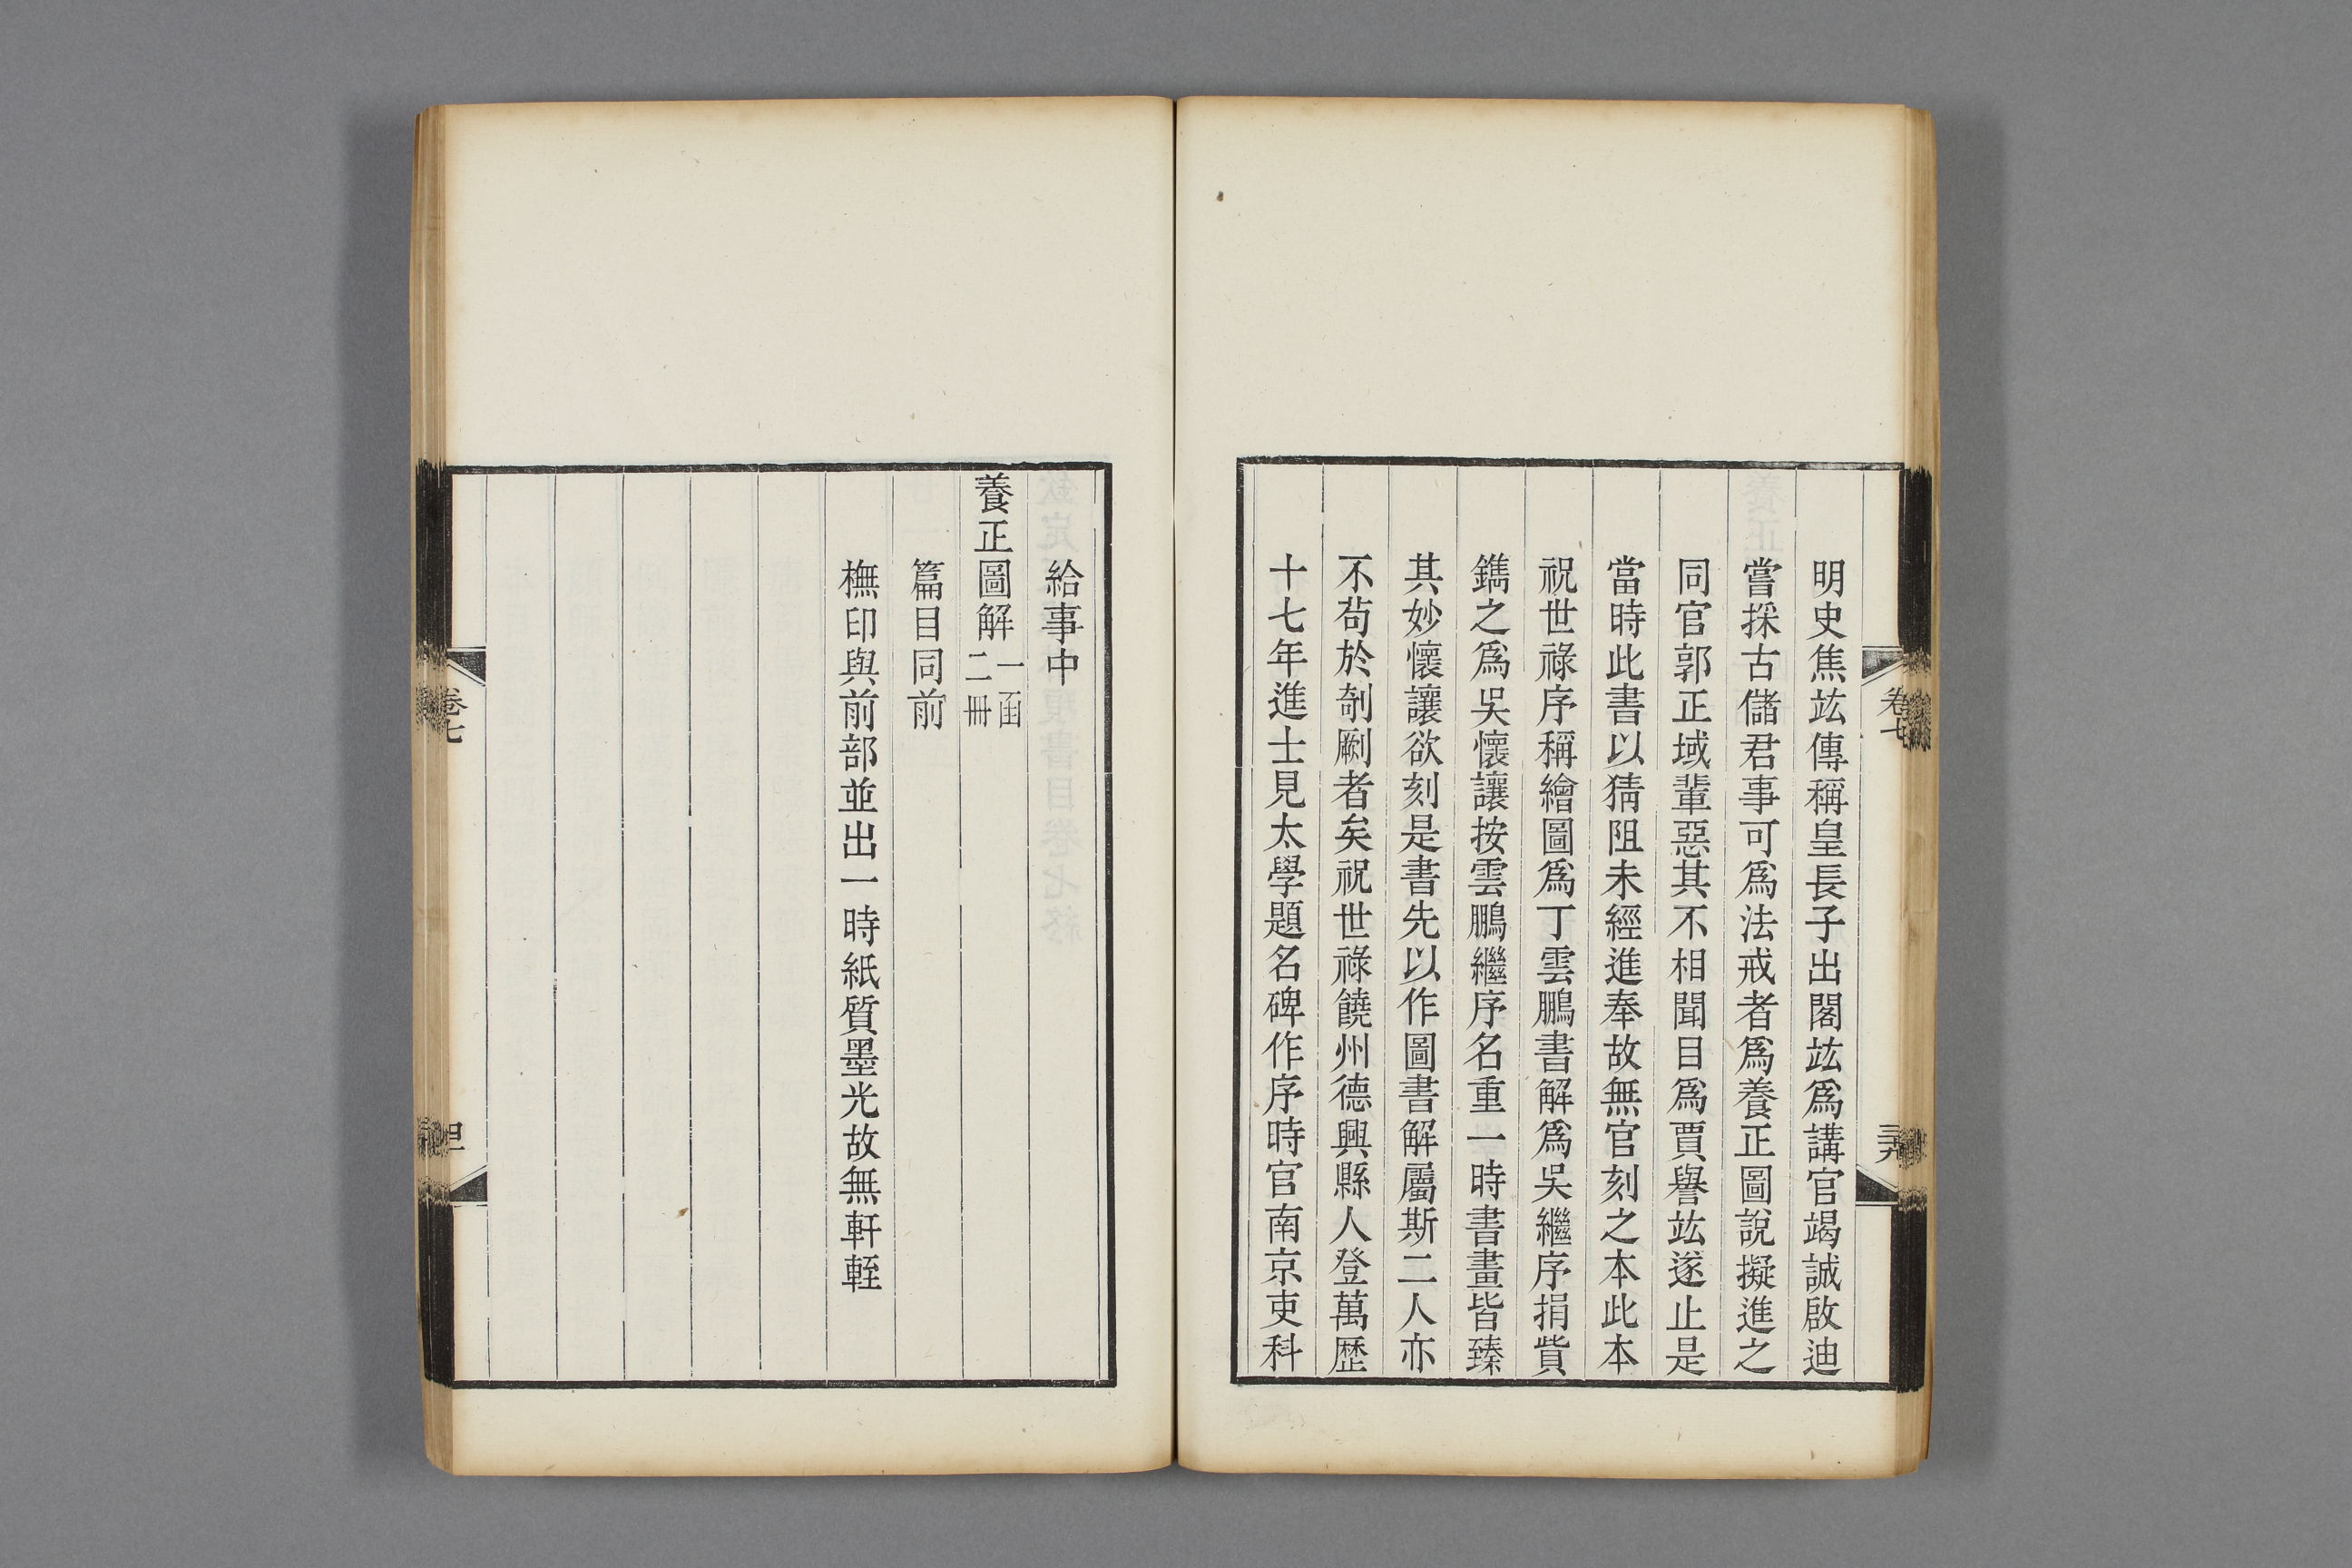 明史焦竑傳稱皇長子出閣竑爲講官竭誠啟迪
嘗採古儲君事可爲法戒者爲養正圖說擬進之
同官郭正域輩惡其不相聞目爲賈譽竑遂止是
當時此書以猜阻未經進奉故無官刻之本此本
祝世祿序稱繪圖爲丁雲鵬書解爲吳繼序捐貲
鐫之爲吳懷讓按雲鵬繼序名重一時書畫皆臻
其妙懷讓欲刻是書先以作圖書解屬斯二人亦
不苟於剞劂者矣祝世祿饒州德興縣人登萬歷
十七年進士見太學題名碑作序時官南京吏科
卷七
給事中
養正圖解一函二冊
篇目同前
橅印與前部並出一時紙質墨光故無軒輊
卷七